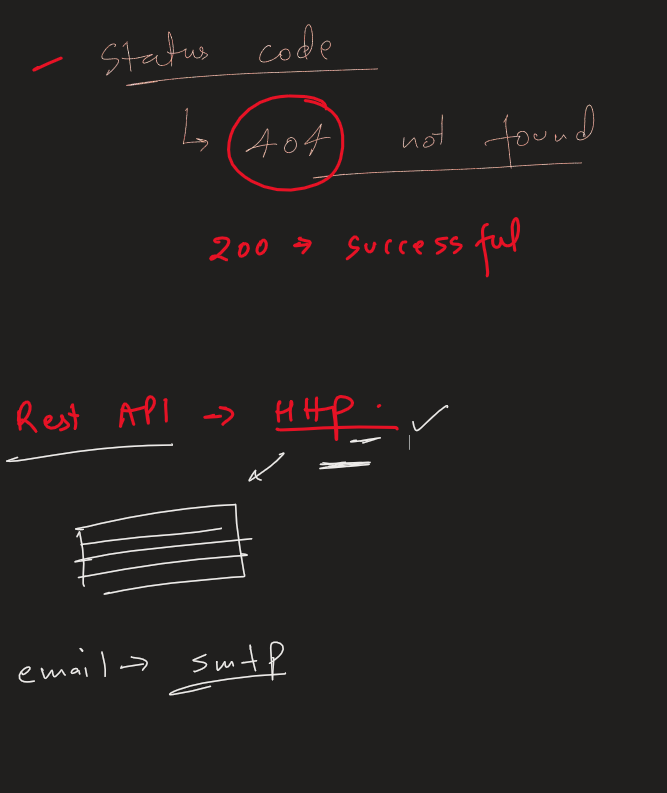 - Status code
↳ 404 not found
200 → successful
Rest API → Http.
email → smtp